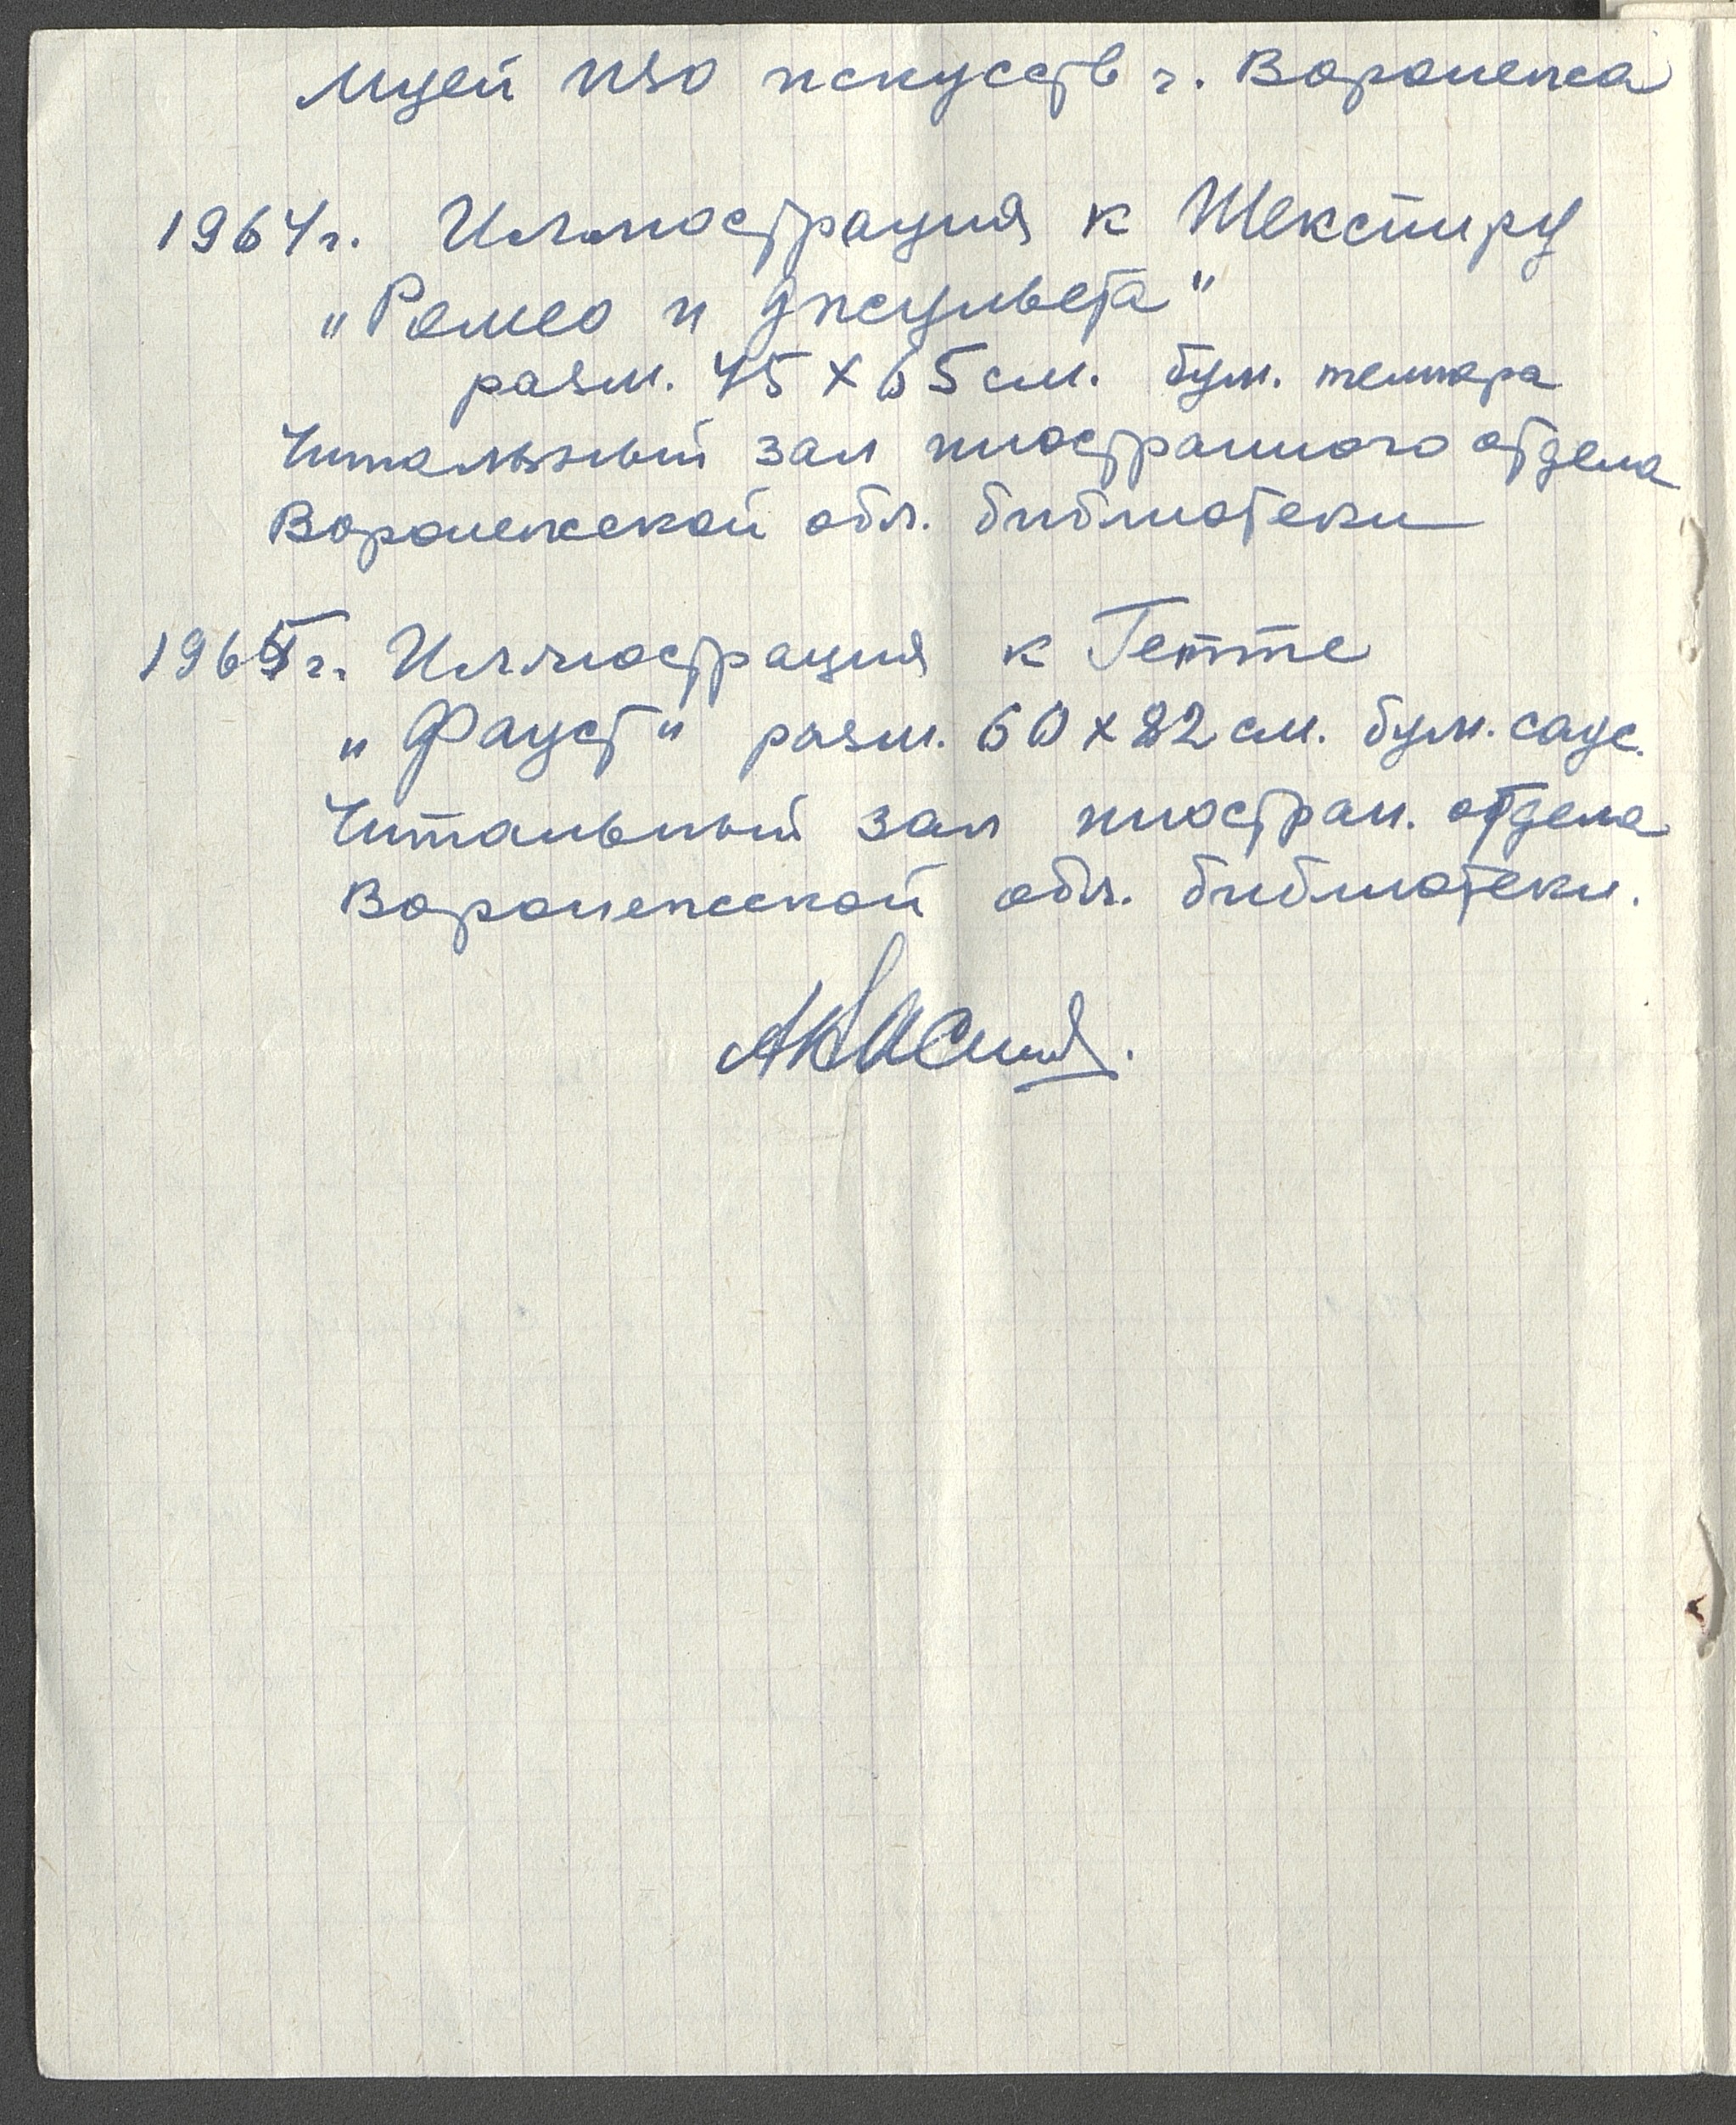 Музей изо искусств г. Воронежа
1964г. Иллюстрация к Шекспиру
„Ромео и Джульета"
разм. 45 х 65 см. бум. темпера
Читальный зал иностранного отдела
Воронежской обл. библиотеки
1965г. Иллюстрация к Гетте
„Фауст" разм. 60 х 82 см. бум. соус.
Читальный зал иностран. отдела
Воронежской обл. библиотеки.